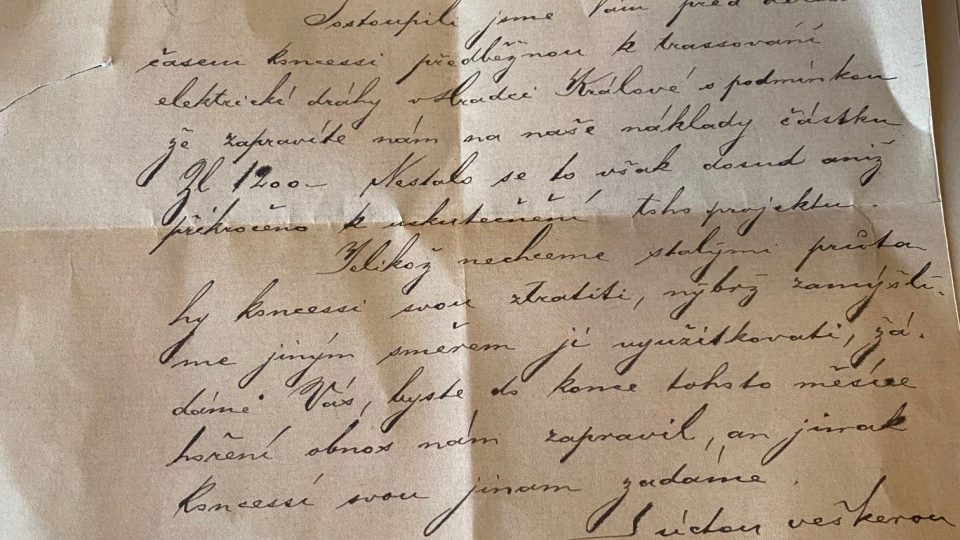 Postoupili jsme Vám před delším
časem koncessi předběžnou k trassování
elektrické dráhy v Hradci Králové s podmínkou
že zapravíte nám na naše náklady částku
Zl 1200— Nestalo se to však dosud aniž
přikročeno k uskutečnění toho projektu.
Jelikož nechceme stalými průta-
hy koncessi svou ztratiti, nýbrž zamýšlí-
me jiným směrem ji využitkovati, žá-
dáme Vás, byste do konce tohoto měsíce
hoření obnos nám zapravil, an jinak
koncessí svou jinam zadáme.
S úctou veškerou